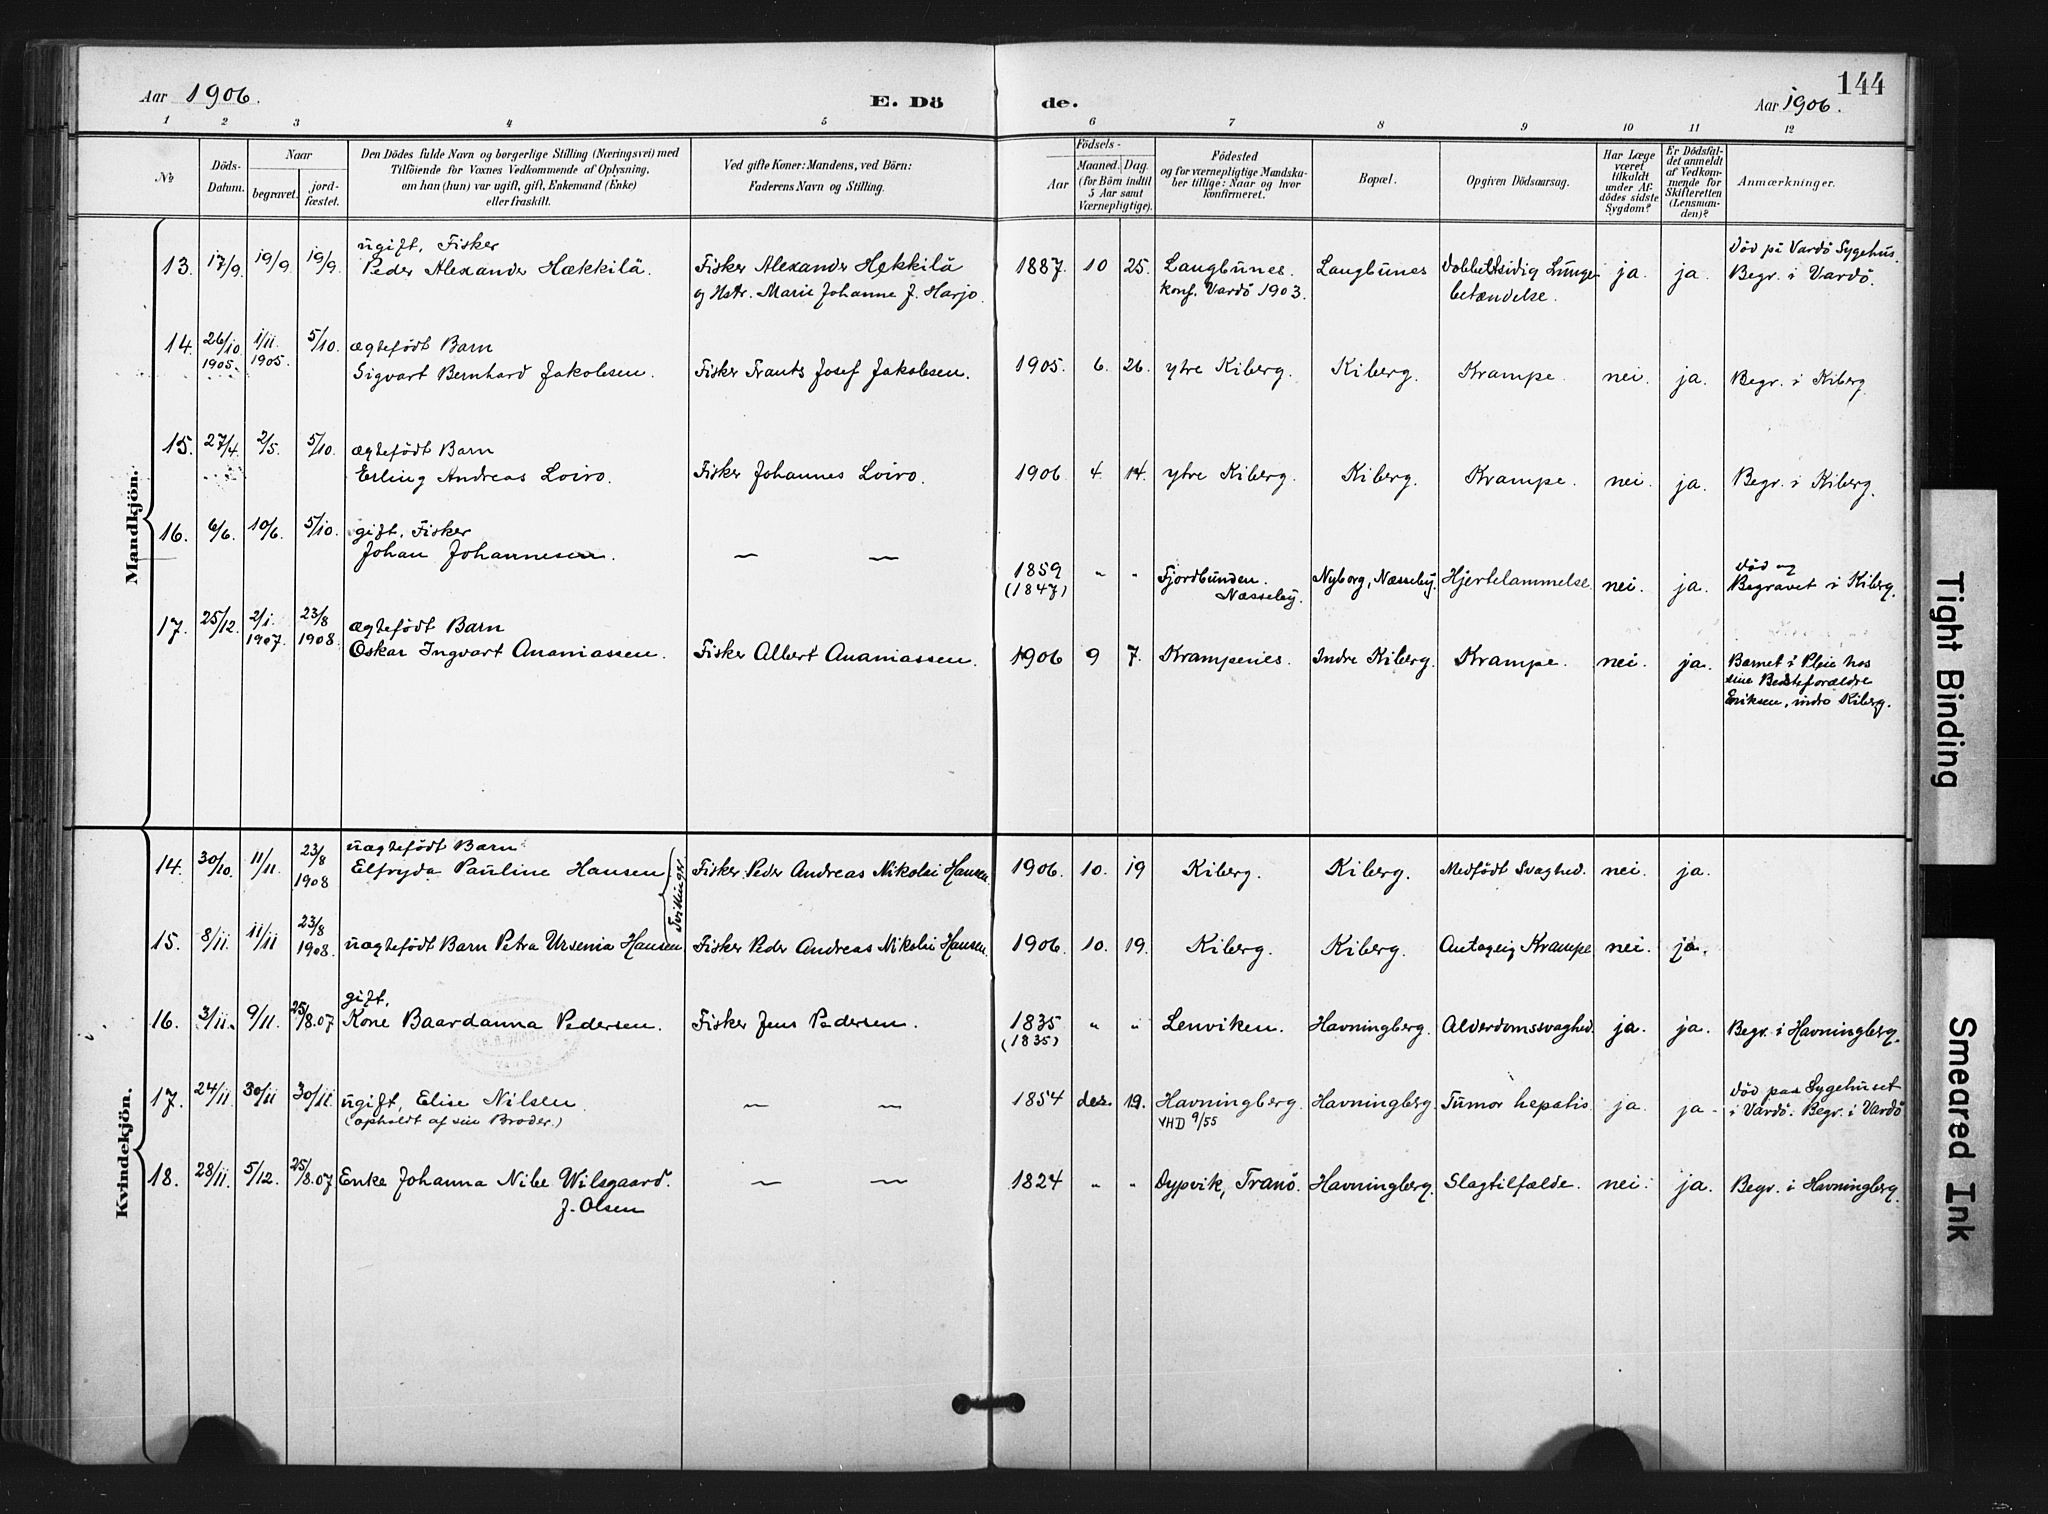 Aar 1906.
E. Dö
de.
144
Aar 1906.
1 2 3 4 5 6 7 8 9 10 11 12
No
Döds-Datum.
Naar
begravet.
jord-fæstet.
Den Dödes fulde Navn og borgerlige Stilling (Næringsvei) med
Tilföiende for Voxnes Vedkommende af Oplysning,
om han (hun) var ugift, gift, Enkemand (Enke)
eller fraskilt.
Ved gifte Koner: Mandens, ved Börn:
Faderens Navn og Stilling.
Födsels-
Aar
Maaned. Dag.
(for Börn indtil
5 Aar samt
Værnepligtige).
Födested
og for værnepligtige Mandska-
ber tillige: Naar og hvor
konfirmeret.
Bopæl.
Opgiven Dödsaarsag.
Har Læge
været
tilkaldt
under Af-
dödes sidste
Sygdom?
Er Dödsfal-
det anmeldt
af Vedkom-
mende for
Skifteretten
(Lensman-
den)?
Anmærkninger.
Mandkjön.
13. 17/9. 19/9. 19/9. ugift, Fisker
Peder Alexander Hækkilä.
Fisker Alexander Hekkilä
og Hstr. Marie Johanne J. Harjo.
1887. 10 25. Langbunes.
konf. Vardö 1903.
Langbunes
Dobbeltsidig Lunge-
betændelse.
ja ja.
Död på Vardö Sygehus.
Begr. i Vardö.
14. 26/10 1905. 1/11 1905. 5/10. ægtefödt Barn
Sigvart Bernhard Jakobsen.
Fisker Frants Josef Jakobsen.
1905. 6. 26. ytre Kiberg. Kiberg. Krampe. nei. ja. Begr. i Kiberg
15. 27/4. 2/5. 5/10. ægtefödt Barn
Erling Andreas Loiro.
Fisker Johannes Loiro.
1906. 4. 14. ytre Kiberg. Kiberg. Krampe. nei. ja. Begr. i Kiberg.
16. 6/6. 10/6. 5/10. gift, Fisker
Johan Johannesen.
1859
(1847)
" " Fjordbunden.
Næsseby.
Nyborg, Næsseby. Hjertelammelse nei. ja.
Död og
Begravet i Kiberg.
17. 25/12. 2/1. 1907. 23/8 1908. ægtefödt Barn
Oskar Ingvart Ananiassen.
Fisker Albert Ananiassen.
1906 9 7. Krampenes. Indre Kiberg. Krampe. nei. ja.
Barnet i Pleie hos
sine Bedsteforældre
Eriksen, indre Kiberg.
Kvindekjön.
14. 30/10. 11/11. 23/8 1908 uægtefödt Barn
Elfryda Pauline Hansen
Tvillinger
Fisker Peder Andreas Nikolai Hansen.
1906. 10. 19 Kiberg. Kiberg. Medfödt Svaghed. nei. ja.
15. 8/11. 11/11 23/8 1908. uægtefödt Barn Petra Ursenia Hansen
Fisker Peder Andreas Nikolai Hansen.
1906. 10. 19. Kiberg. Kiberg. Antagelig Krampe nei. ja.
16. 3/11. 9/11. 25/8.07 gift,
Kone Baardanna Pedersen.
Fisker Jens Pedersen.
1835
(1835)
" " Lenviken. Havningberg. Alderdomssvaghed. ja. ja. Begr. i Havningberg.
17. 24/11. 30/11 30/11. ugift, Elise Nilsen.
(opholdt af sin Broder.)
1854 des. 19. Havningberg.
VHD 9/55
Havningberg Tumor hepatis ja. ja.
Död paa Sygehuset
i Vardö. Begr. i Vardö
18. 28/11. 5/12. 25/8.07 Enke Johanna Nibe Wilsgaard.
J. Olsen
1824 " " Dypvik, Tranö. Havningberg. Slagtilfælde. nei. ja. Begr. i Havningberg.
Tight Binding
Smeared Ink